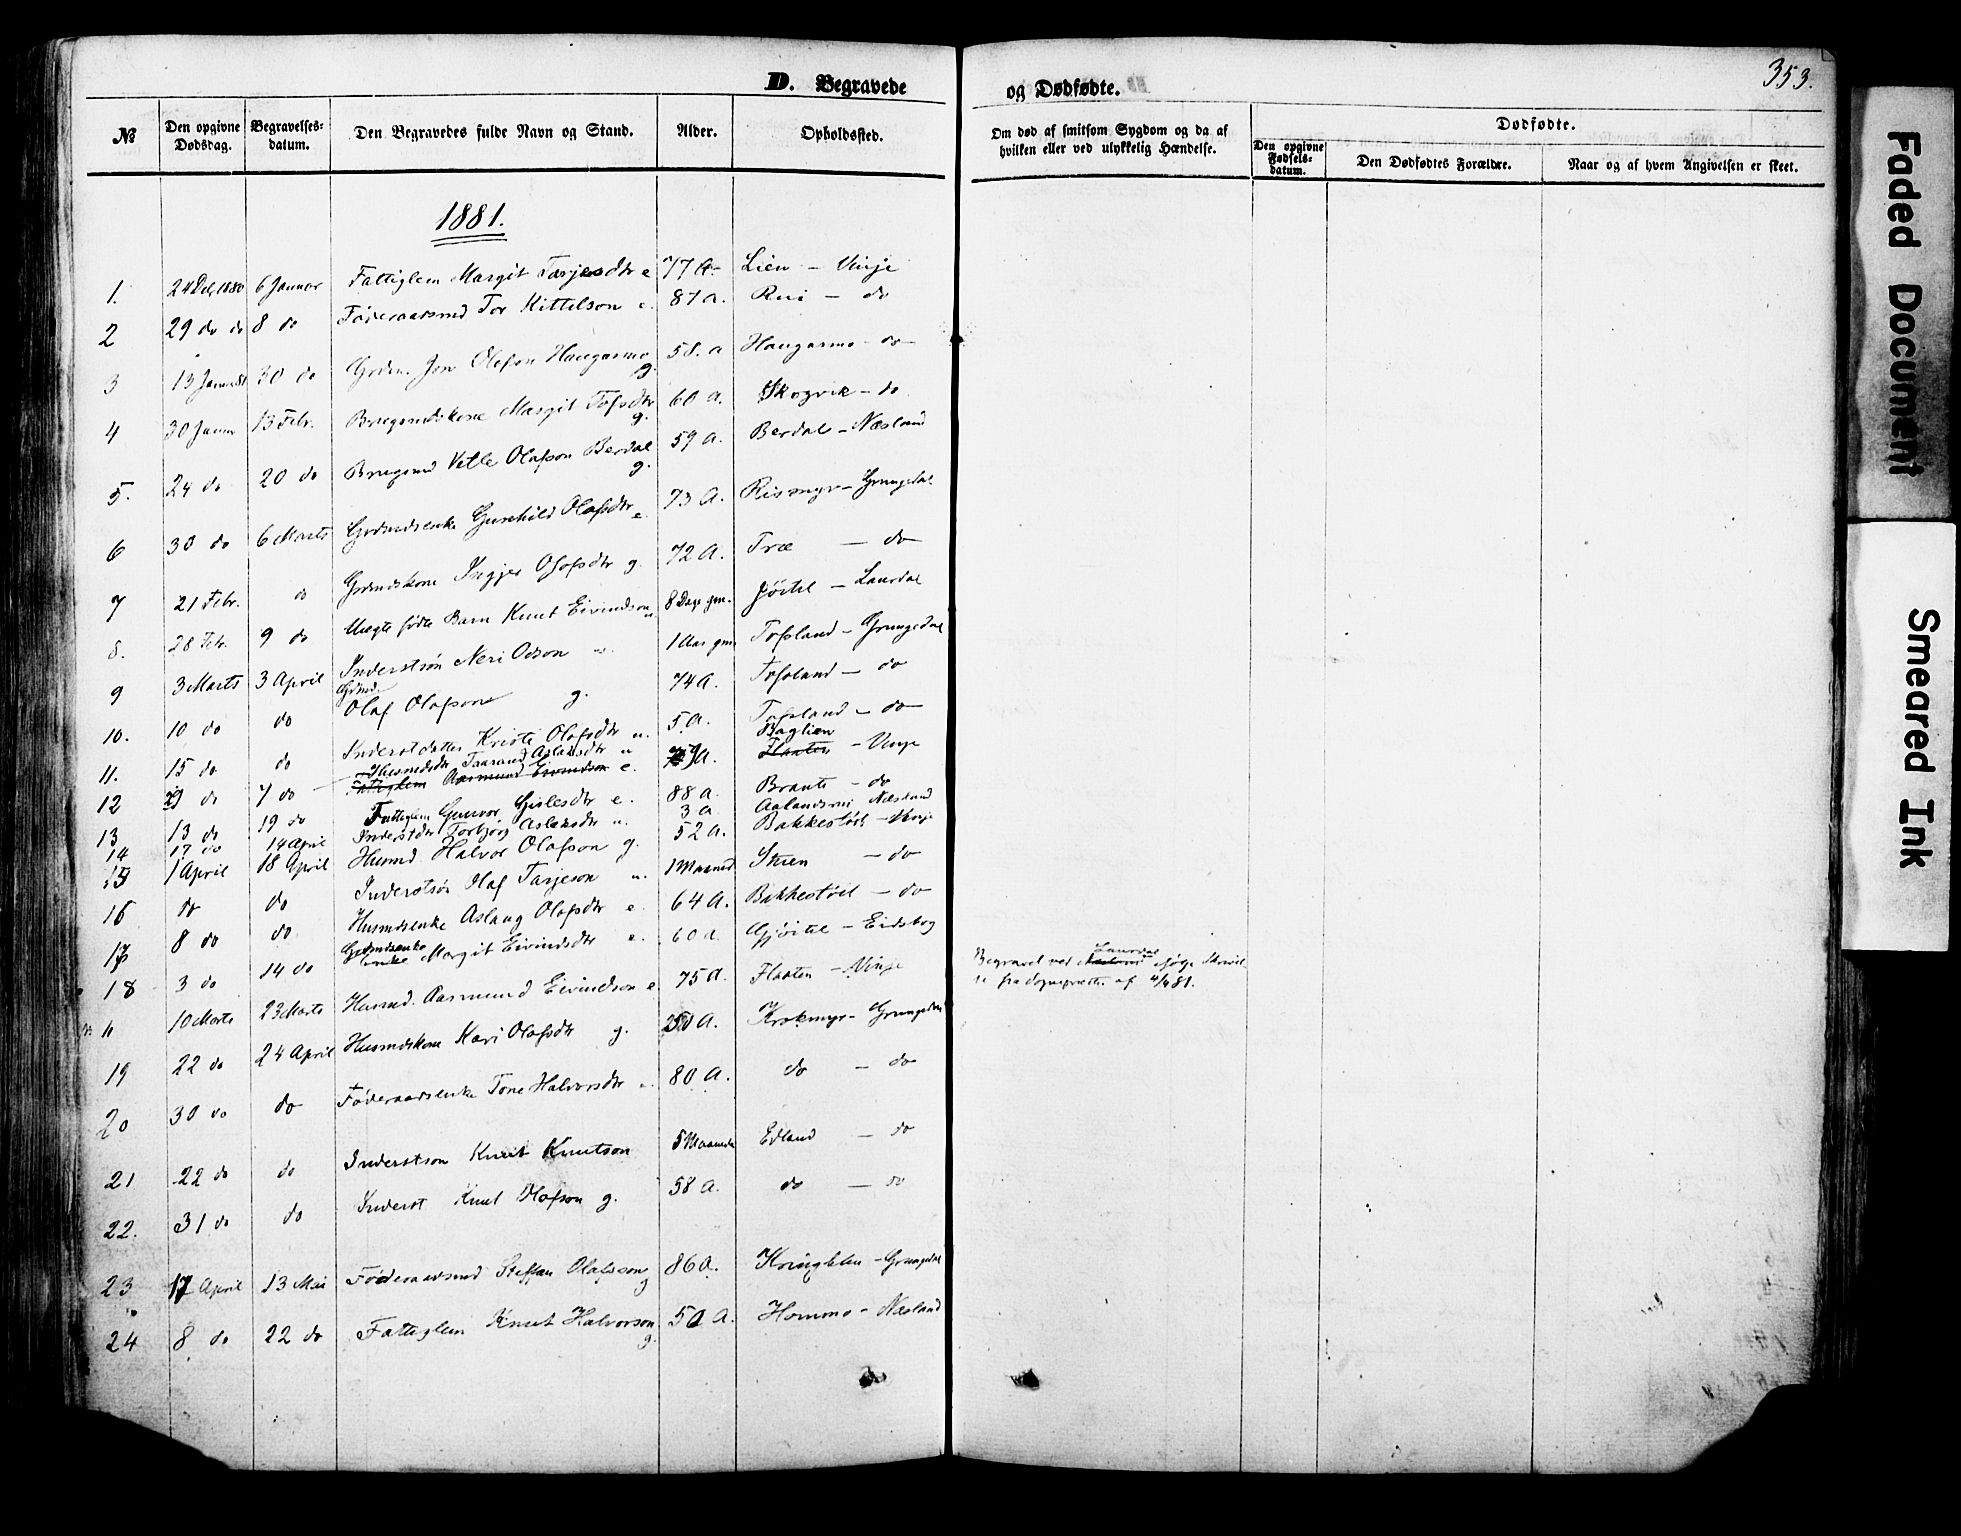 D. Begravede og Dødfødte.
353.
№ Den opgivne Dødsdag. Begravelses-datum. Den Begravedes fulde Navn og Stand. Alder. Opholdssted. Om død af smitsom Sygdom og da af hvilken eller ved ulykkelig Hændelse. Dødfødte.
Den opgivne Fødsels-datum. Den Dødfødtes Forældre. Naar og af hvem Angivelsen er skeet.
1881.
1. 24 Dec 1880 6 Januar Fattiglem Margit Tarjesdtr e 77 A- Lien - Vinje
2 29 do do 8 do Føderaadsmd Tor Kittelson e. 87 a. Rui - do
3 13 Januar 81 30 do Grdm. Jon Olafson Haugasmo g. 58. a Haugasmo - do
4 30 Januar 13 Febr. Brugsmdskone Margit Tofsdtr g. 60 A. Skogvik - do
5. 24 do 20 do Brugsmd Vetle Olafson Berdal g. 59 A. Berdal - Næsland
6 30 do 6 Marts Grdmdsenke Gunhild Olafsdtr e. 73 A. Rismyr - Grungedal
7 21 Febr. do Grdmdskone Ingjer Olafsdtr g. 72 A. Træ - do
8. 28 Febr. 9 do Uægte fødte Barn Knut Eivindson u 8 Dage gm. Jøitil - Laurdal
9 3 Marts 3 April Inderstsøn Neri Odson u. 1 Aar gm Tofsland - Grungedal
10. 10 do do Grdmd. Olaf Olafson g. 74 A. Tofsland - do
11. 15 do do Inderstdatter Kristi Olafsdtr u. 5 A. Tofsland - do
12 29 do 7 do Husmdsdtr Taarand Aslaksdtr u Baglien
Fattiglem Aasmund Eivindson e. A. Flaaten - Vinje
13 13 do 19 do Fattiglem Gunvor Gislesdtr e. 88 a. Braute - do
14 17 do 14 April Inderstdtr Torbjør Aslaksdtr u. 3 a Aalandsrui Næsland
15 1 April 18 April Husmd. Halvor Olafson g. 52 A. Bakkestøil - Vinje
16 do do Inderstsøn Olaf Tarjeson u. 1 Maaned Stuen - do
17 8 do do Husmdsenke Aslaug Olafsdtr e. 64 A. Bakkestøil - do
18 3 do 14 do Grdmdsenke enke Margit Eivindsdtr e. 60 a Gjøitil - Eidsborg Begravet ved Laurdal ifølge Skrivelse fra Sognepresten af 4/4 81.
11 10 Marts 23 Marts Husmd. Aasmund Eivindson e 75 A. Flaaten - Vinje
19 22 do 24 April Husmdskone Kari Olafsdtr g. A. Krokmyr - Grungedal
20 30 do do Føderaadsenke Tone Halvorsdtr e. 80 A. do - do
21 22 do do Inderstson Knut Knutson 5 Maaneder Edland - do
22. 31 do do Inderst Knut Olafson g. 58 A. do - do
23 17 April 13 Mai Føderaadsmd Steffan Olafsson g 86 A. Kringlelen - Grungedal
24 8 do 22 do Fattiglem Knut Halvorson g. 50 A. Hommo - Næsland
Faded Document
Smeared Ink